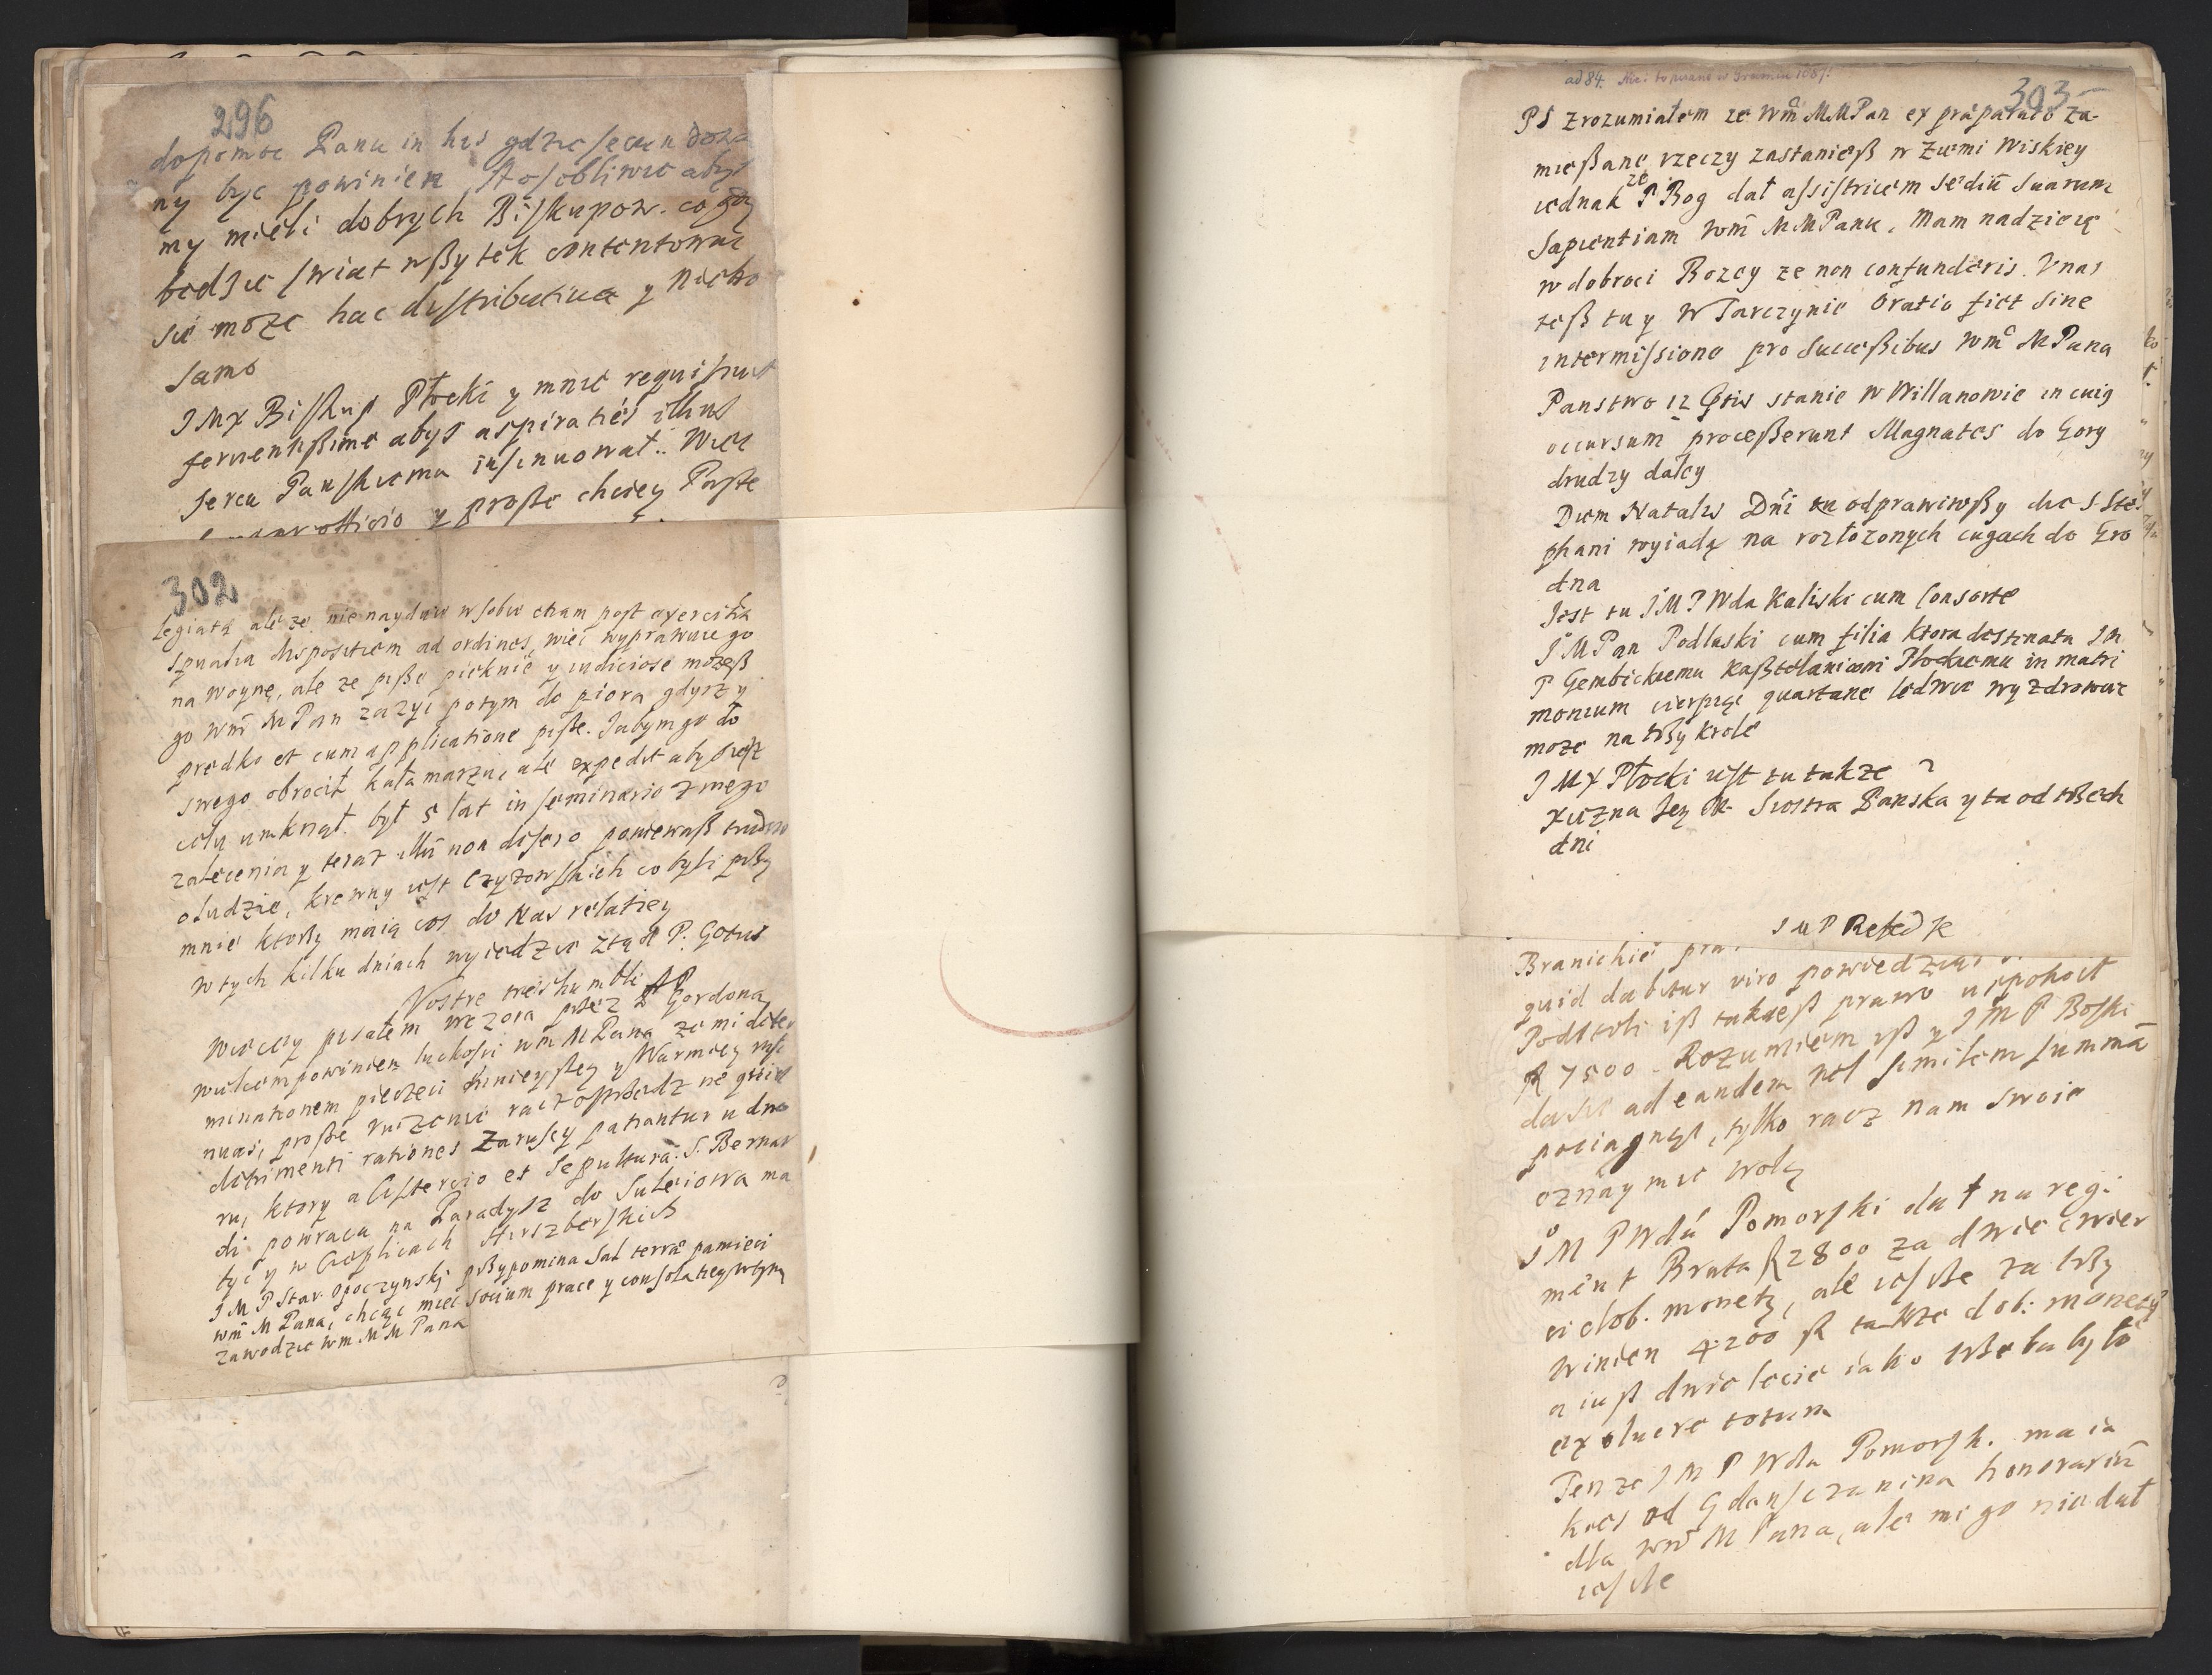 296
dopomoc Panu in his gdzie secun
ny byc powinien A osobliwie abys
my mieli dobrych Biskupow. co gdy
bedzie swiat wßytek contentowac
sie moze hac distributiva y niebo
samo
JMX Biskup Płocki y mnie requisivit
ferventißime abys aspiraties illius
sercu Panskiemu insinuował. Wiec
officio y proße chciey Paste
302
legiatą ale ze nie nayduie w sobie etiam post exercitia
spualia dispositiem ad ordines, wiec wyprawuie go
na woynę, ale ze piße pieknie y iudiciose możeß
go wm̃ M Pan zazyc potym do piora gdysz y
predko et cum applicatione piße. Jabym go do
swego obrocił kałamarzu, ale expedit aby
umknął. był 5 lat in seminario z mego
zalecenia y teraz illū non desero poniewaß trudno
o ludzie, krewny iest Czyzowskich co byli pßy
mnie ktoßy maią cos do Nas relatiey
W tych kilku dniach wyiedzie ztąd P. Gotus
Vostre treshumble
Wiecey pisałem wczora pßez P Gordona
powinien łuckosci wm̃ M Pana ze mi deter
minationem pieczeci mnieyszey y Warmiey
nuai, proße racz ne quid
detrimenti rationes Zaruscy patiantur u dwo
ru, ktory a Cistercio et Sepultura S. Bernar
di powraca na Paradysz do Suleiowa ma
tyc y w Cieplicach Hirszberskich
J M P Star. Opoczynski pßypomina Sal terræ pamieci
wm̃ M Pana, chcąc miec socium prace y consolatiey wtym
zawodzie wm̃ M M Pana
ad 84.
303
PS Zrozumiałem ze Wm̃ MMPan ex præparato za-
mießane rzeczy zastanieß w Ziemi Wiskiey
iednak ze P Bog dał assistricem sediū suarum
Sapientiam Wm̃ MMPanu, Mam nadzieię
w dobroci Bozey ze non confunderis. V nas
teß tu y W Tarczynie oratio fiet sine
intermissione pro Suceßibus Wm̃ MPana
Panstwo 12 Xbris stanie w Willanowie in cuig
occursum proceßerunt Magnates do Gory
drudzy daley
Diem Natalis Dn̄i tu odprawiwßy die S Ste
phani wyiadą na rozłozonych cugach do Gro
dna
Jest tu JMP Wda Kaliski cum Consorte
JMPan Podluski cum filia ktora destinata JM
P Gembickiemu Kaßtelaniowi Płockiemu in matri
monium cierpiąc quartane ledwie wyzdrowiec
moze na tßy krole
JMX Płocki iest tu takze
Xiezna Jey M. Siostra Panska y tu od tßech
dni
Branickie
quid dabitur viro powiedziano
Podstoli iß takieß prawo uspokoił
fl 7500. Rozumiem iß y JM P Boski
da sie ad eandem vel similem summā
pociągnąc, tylko racz nam swoie
oznaymic wolą
JM P Wda Pomorski dał na regi
ment Brata fl 2800 za dwie cwier
ci dob. monety, ale ieszcze za tßy
winien 4200 fl takze dob: monety
a iuß dwie lecie iako tßeba było
exoluere totum
Tenze JM P Wda Pomorsk. ma ia
kies od Gdanszczanina honorariū
dla wm̃ M Pana, ale mi go nie dał
ieszcze